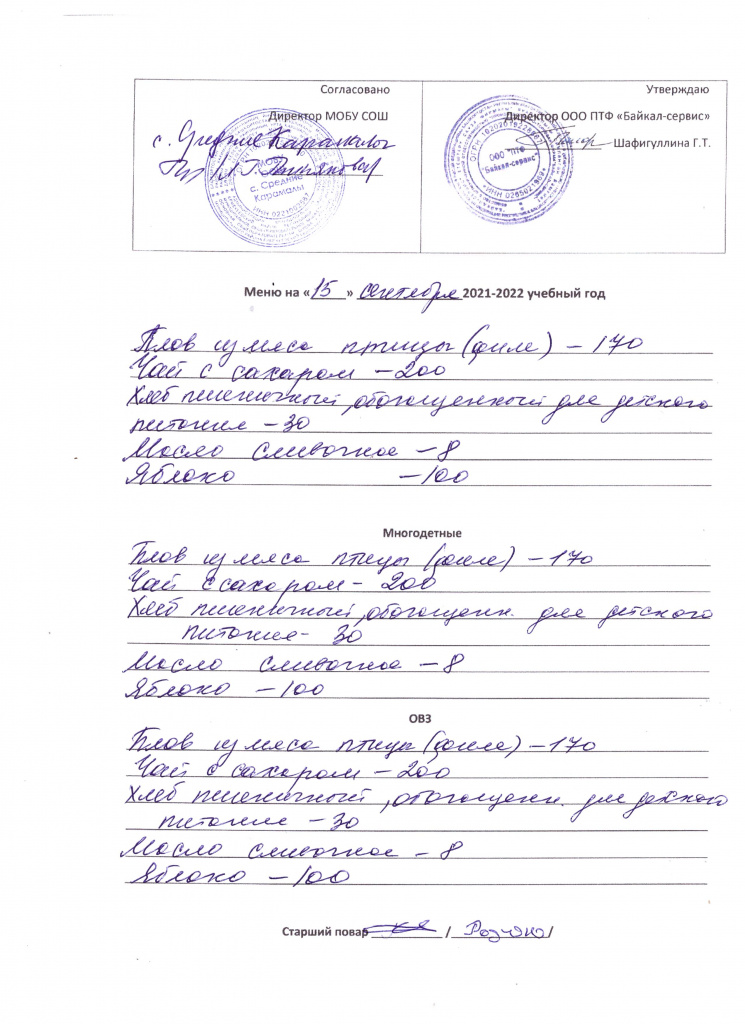 Согласовано
Директор МОБУ СОШ
с. Средние Карамалы
МОБУ
с. Средние
Карамалы
Утверждаю
Директор ООО ПТФ «Байкал-сервис»
Шафигуллина Г.Т.
ООО "ПТФ
"Байкал-сервис"
Меню на «15» сентября 2021-2022 учебный год
Плов из мяса птицы (филе) – 170
Чай с сахаром – 200
Хлеб пшеничный, обогащенный для детского
питания – 30
Масло сливочное – 8
Яблоко – 100
Многодетные
Плов из мяса птицы (филе) – 170
Чай с сахаром – 200
Хлеб пшеничный, обогащенн. для детского
питания – 30
Масло сливочное – 8
Яблоко – 100
ОВЗ
Плов из мяса птицы (филе) – 170
Чай с сахаром – 200
Хлеб пшеничный, обогащенн. для детского
питание – 30
Масло сливочное – 8
Яблоко – 100
Старший повар / /